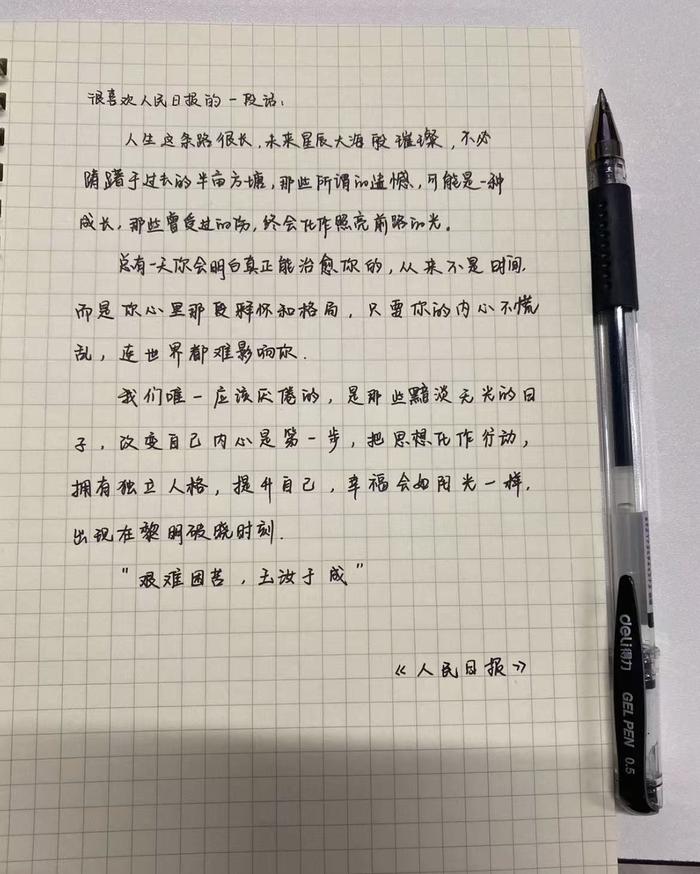 很喜欢人民日报的一段话：
人生这条路很长，未来星辰大海般璀璨，不必
踌躇于过去的半亩方塘，那些所谓的遗憾，可能是一种
成长，那些曾受过的伤，终会化作照亮前路的光。
总有一天你会明白真正能治愈你的，从来不是时间，
而是你心里那段释怀和格局，只要你的内心不慌
乱，连世界都难影响你.
我们唯一应该厌倦的，是那些黯淡无光的日
子，改变自己内心是第一步，把思想化作行动，
拥有独立人格，提升自己，幸福会如阳光一样，
出现在黎明破晓时刻.
"艰难困苦，玉汝于成"
《人民日报》
deli得力 GEL PEN 0.5